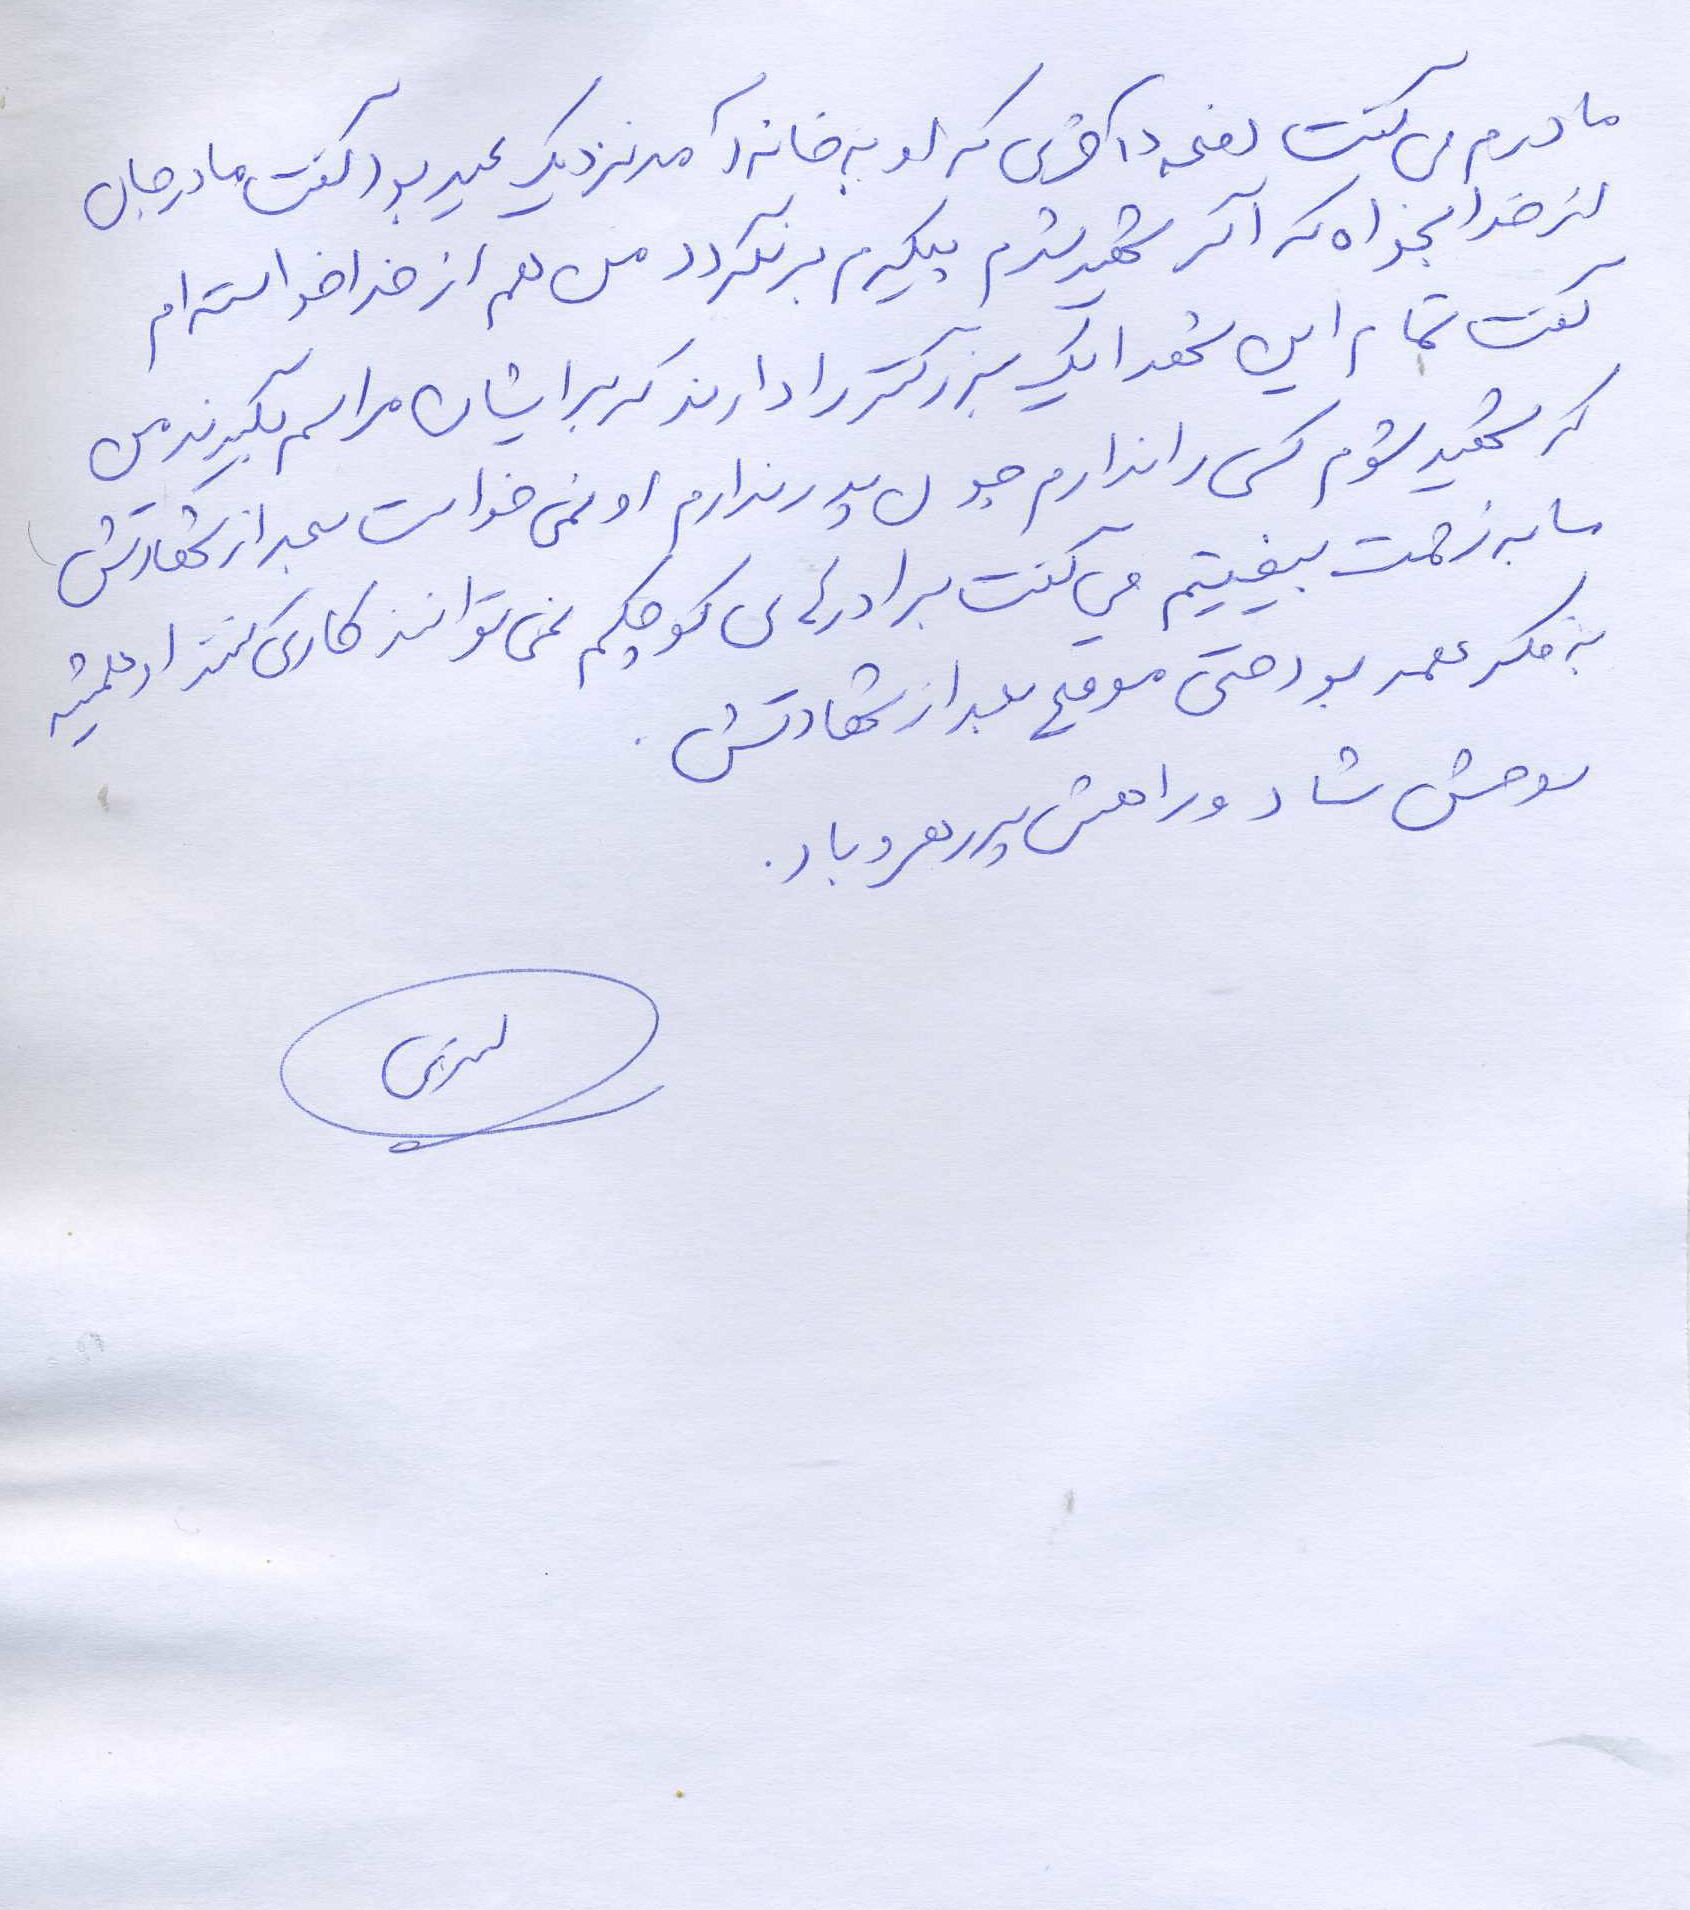 مادرم می گفت دفعه آخری که او به خانه آمد نزدیک عید بود گفت مادر جان
از خدا بخواه که اگر شهید شدم پیکرم برنگردد من هم از خدا خواسته ام
گفت تمام این شهدا یک بزرگتر را دارند که برایشان مراسم بگیرند من
که شهید شوم کسی را ندارم چون پدر ندارم او نمی خواست بعد از شهادتش
ما به زحمت بیفیتیم می گفت برادرهای کوچکم نمی توانند کاری کنند او همیشه
به فکر همه بود حتی موقع بعد از شهادتش .
روحش شاد و راهش پر رهرو باد.